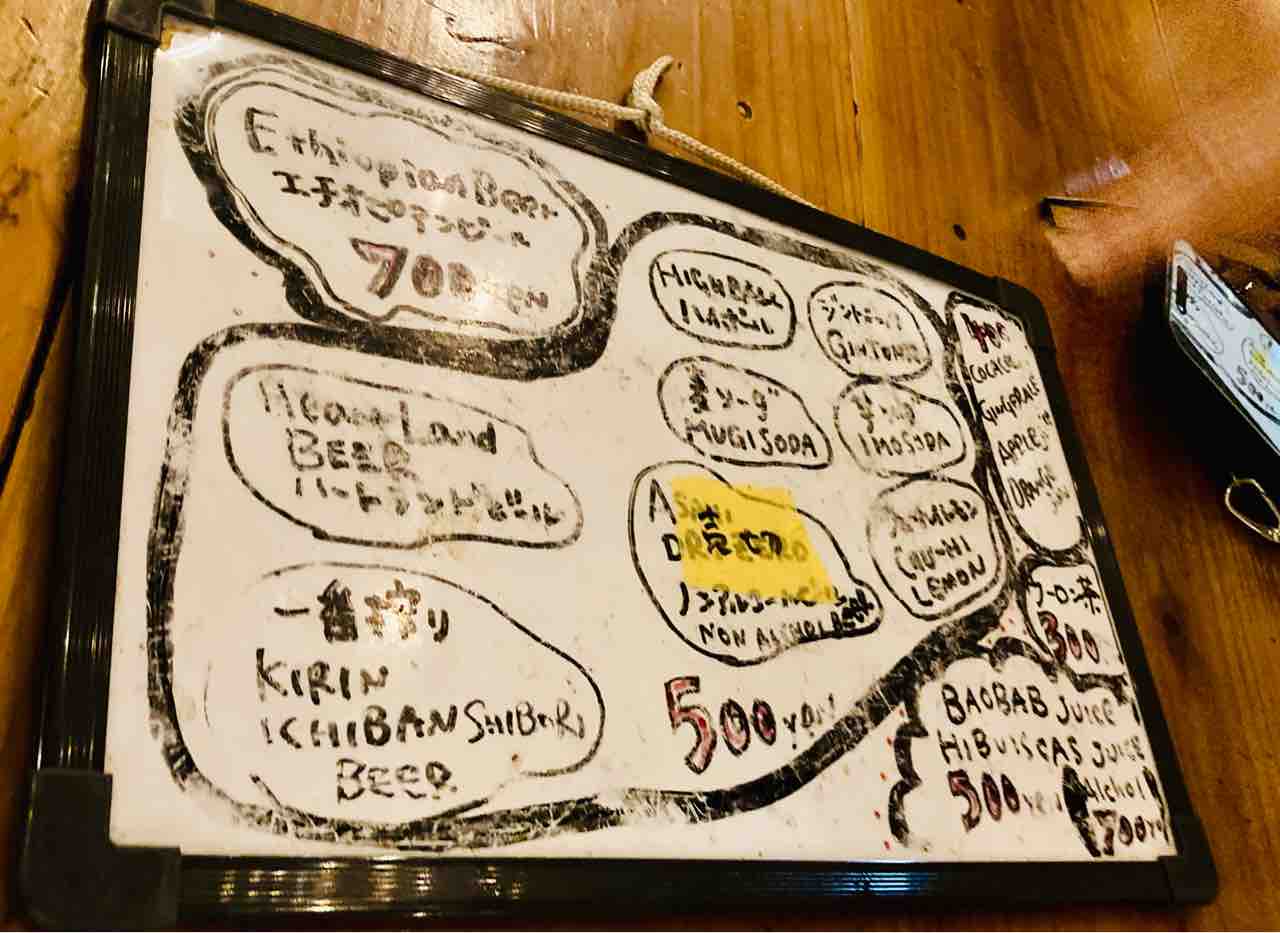 Ethiopian Beer
エチオピアンビール
700 YEN
HeartLand
BEER
ハートランドビール
一番搾り
KIRIN
ICHIBAN SHIBORI
BEER
HIGHBALL
ハイボール
ジントニック
GINTONIC
麦ソーダ
MUGISODA
芋ソーダ
IMOSODA
ASAHI
DRYZERO
売切
ノンアルコールビール
NON ALCHOL BEER
CHU-HI
LEMON
500 yen
400
COCACOLA
GINGERALE
APPLE
ORANGE
ウーロン茶
300
BAOBAB Juice
HIBUISCAS JUICE
500 yen
Alchol
700 yen